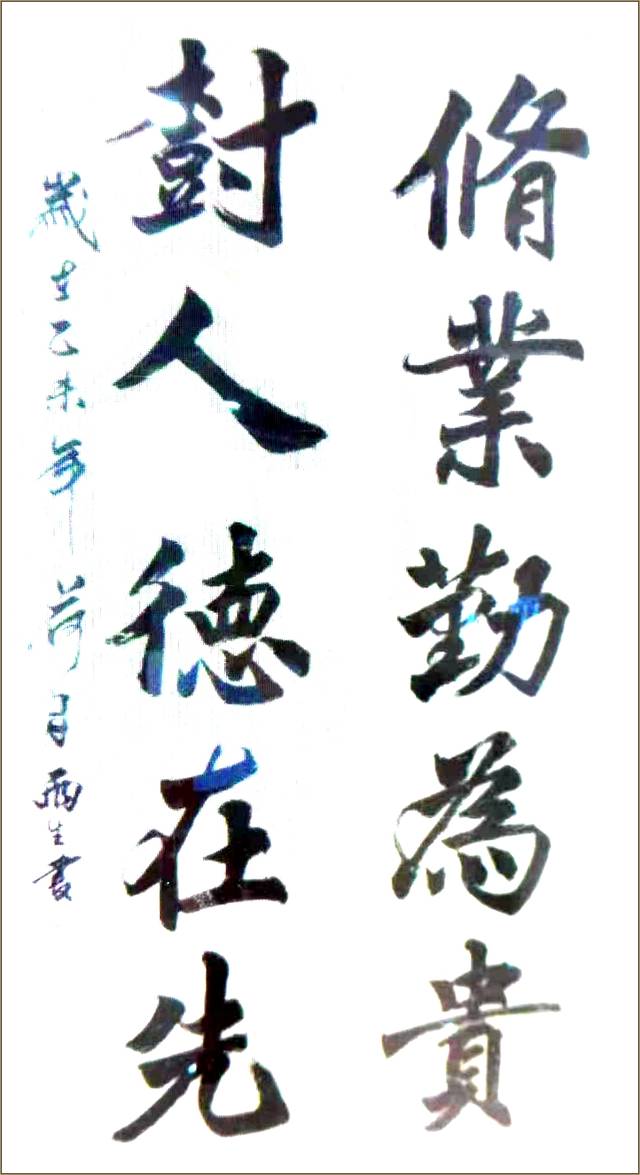 脩業勤為貴
尌人德在先
歲在乙未年荷月雨生書